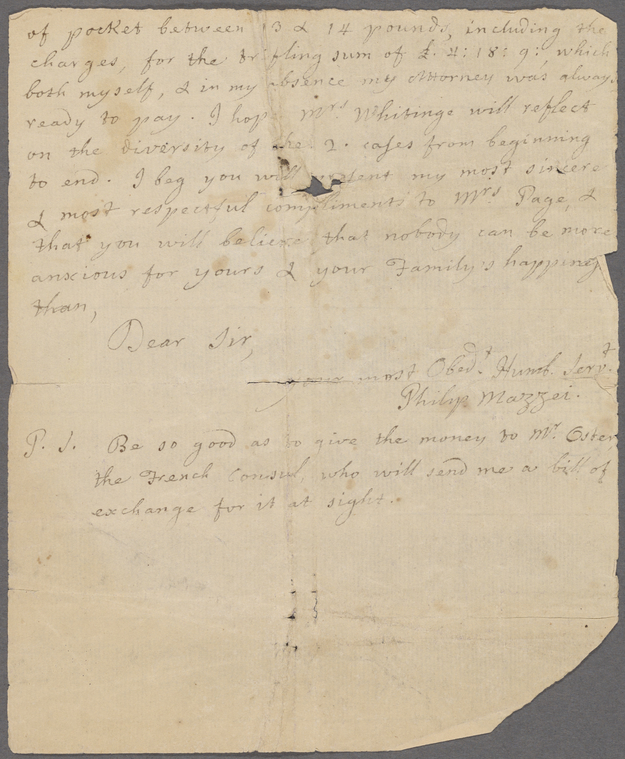 of pocket between 13 & 14 pounds, including the
charges, for the trifling sum of £. 4: 18: 9:, which
both myself, & in my absence my Attorney was always
ready to pay. I hope Mrs Whitinge will reflect
on the diversity of the 2. cases from beginning
to end. I beg you will present my most sincere
& most respectful compliments to Mrs Page, &
that you will believe that nobody can be more
anxious for yours & your Family's happiness
than,
Dear Sir,
your most Obedt. Humb. Servt.
Philip Mazzei.
P. S. Be so good as to give the money to Mr. Oster
the French Consul, who will send me a bill of
exchange for it at sight.